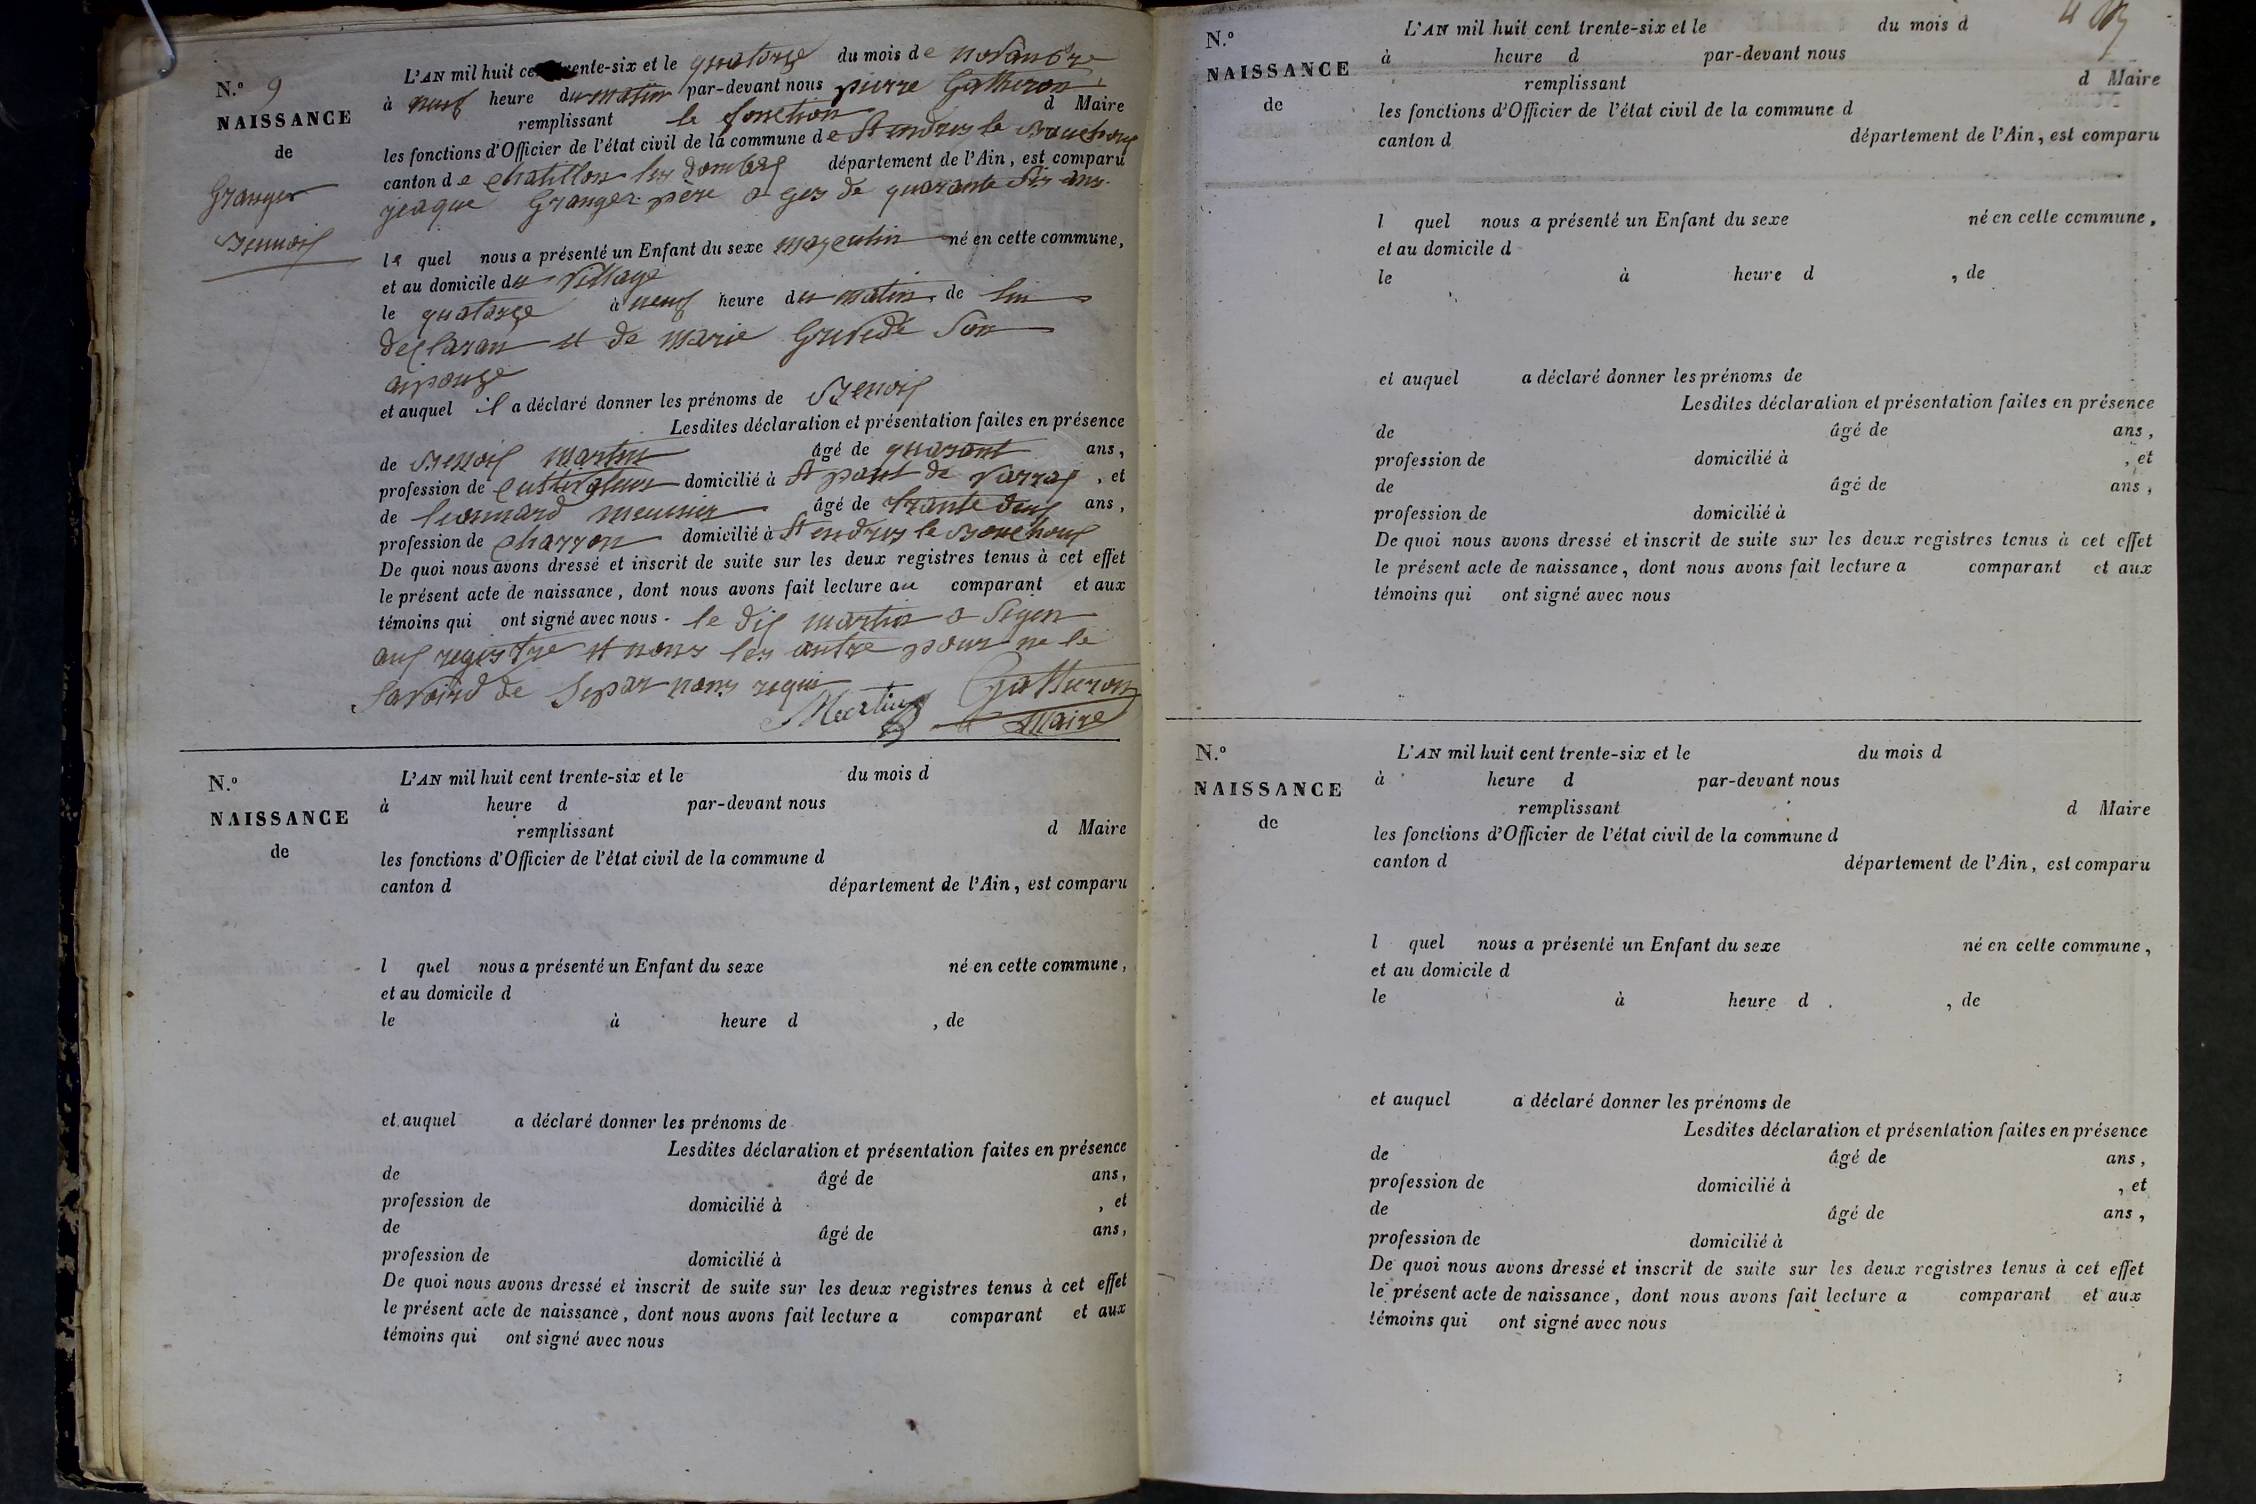 N.o 9
NAISSANCE
de
Granger
Bennoit
L'AN mil huit cent trente-six et le quatorze du mois de novanbre
à neuf heure du matin par-devant nous pierre Gatheron
remplissant le fonction d Maire
les fonctions d'Officier de l'état civil de la commune de St andres le Bouchoux
canton de Chatillon les dombes département de l'Ain, est comparu
jeaque Granger père a ges de quarante Six ans
le quel nous a présenté un Enfant du sexe masculin né en cette commune,
et au domicile du village
le quatorze à neuf heure du matin de lui
declaran et de marie Son
aipouze
et auquel il a déclaré donner les prénoms de Benoit
Lesdites déclaration et présentation faites en présence
de Benoit martin âgé de quarant ans,
profession de cultivateur domicilié à St paul de varax, et
de lieonnard meunier âgé de trante deux ans,
profession de charron domicilié à St andres le Bouchoux
De quoi nous avons dressé et inscrit de suite sur les deux registres tenus à cet effet
le présent acte de naissance, dont nous avons fait lecture au comparant et aux
témoins qui ont signé avec nous. le dit martin a Signe
aux registre et nous les autre pour ne le
Savoird de Se par nous requi
Martin Gatheron
Maire
N.o
NAISSANCE
de
L'AN mil huit cent trente-six et le du mois d
à heure d par-devant nous
remplissant d Maire
les fonctions d'Officier de l'état civil de la commune d
canton d département de l'Ain, est comparu
l quel nous a présenté un Enfant du sexe né en cette commune,
et au domicile d
le à heure d , de
et auquel a déclaré donner les prénoms de
Lesdites déclaration et présentation faites en présence
de âgé de ans,
profession de domicilié à , et
de âgé de ans,
profession de domicilié à
De quoi nous avons dressé et inscrit de suite sur les deux registres tenus à cet effet
le présent acte de naissance, dont nous avons fait lecture a comparant et aux
témoins qui ont signé avec nous
N.o
NAISSANCE
de
L'AN mil huit cent trente-six et le du mois d
à heure d par-devant nous
remplissant d Maire
les fonctions d'Officier de l'état civil de la commune d
canton d département de l'Ain, est comparu
l quel nous a présenté un Enfant du sexe né en cette commune,
et au domicile d
le à heure d , de
et auquel a déclaré donner les prénoms de
Lesdites déclaration et présentation faites en présence
de âgé de ans,
profession de domicilié à , et
de âgé de ans,
profession de domicilié à
De quoi nous avons dressé et inscrit de suite sur les deux registres tenus à cet effet
le présent acte de naissance, dont nous avons fait lecture a comparant et aux
témoins qui ont signé avec nous
N.o
NAISSANCE
de
L'AN mil huit cent trente-six et le du mois d
à heure d par-devant nous
remplissant d Maire
les fonctions d'Officier de l'état civil de la commune d
canton d département de l'Ain, est comparu
l quel nous a présenté un Enfant du sexe né en cette commune,
et au domicile d
le à heure d , de
et auquel a déclaré donner les prénoms de
Lesdites déclaration et présentation faites en présence
de âgé de ans,
profession de domicilié à , et
de âgé de ans,
profession de domicilié à
De quoi nous avons dressé et inscrit de suite sur les deux registres tenus à cet effet
le présent acte de naissance, dont nous avons fait lecture a comparant et aux
témoins qui ont signé avec nous